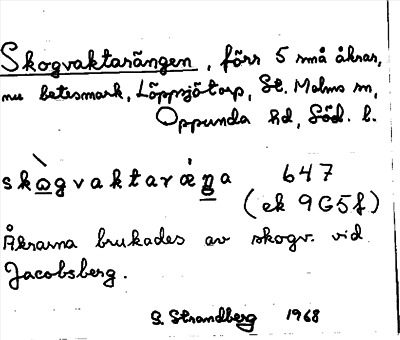 Skogvaktarängen, förr 5 små åkrar,
nu betesmark, Löppsjötorp, St. Malms sn,
Oppunda hd, Söd. l.
skògvaktaræ̇ŋa 647
(ek 9G5f)
Åkrarna brukades av skogv. vid
Jacobsberg.
G. Strandberg 1968